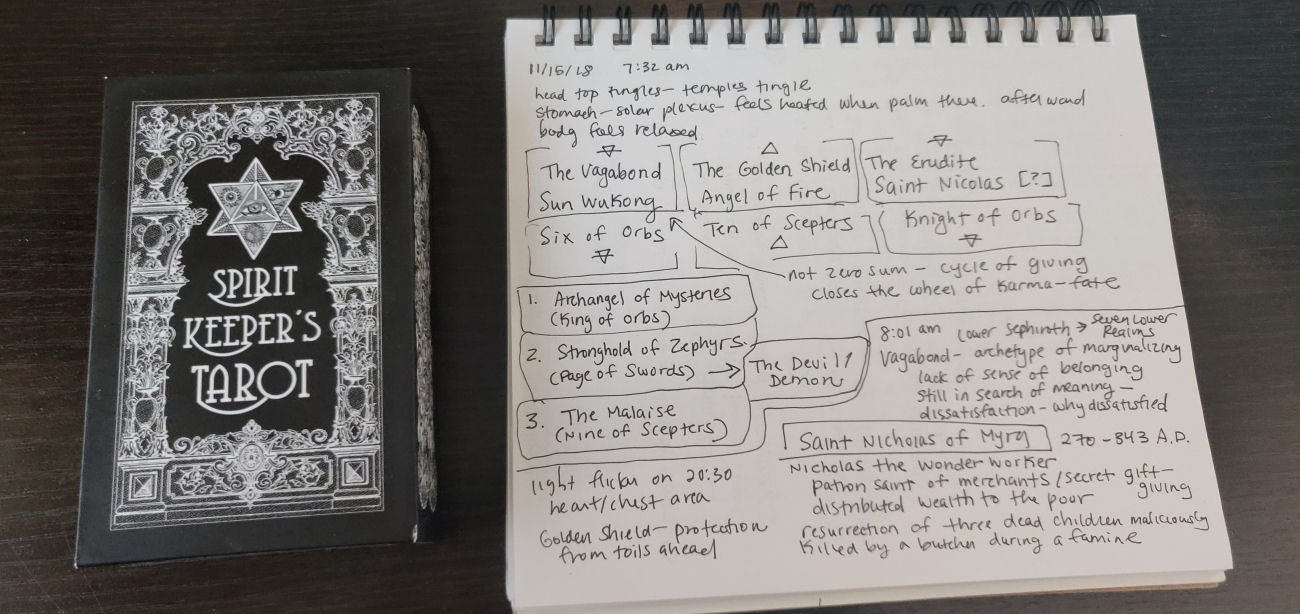 SPIRIT
KEEPER'S
TAROT
11/15/18 7:32 am
head top tingles - temples tingle
stomach - solar plexus - feels heated when palm there. afterward
body feels relaxed
The Vagabond
Sun Wukong
The Golden Shield
Angel of Fire
The Erudite
Saint Nicolas [?]
Six of Orbs
Ten of Scepters
Knight of Orbs
not zero sum - cycle of giving
closes the wheel of karma - fate
1. Archangel of Mysteries
(King of Orbs)
2. Stronghold of Zephyrs
(Page of Swords) →
The Devil/
Demon
3. The Malaise
(Nine of Scepters)
8:01 am Lower Sephiroth → Seven Lower
Realms
Vagabond - archetype of marginalizing
lack of sense of belonging
still in search of meaning -
dissatisfaction - why dissatisfied
Saint Nicholas of Myra 270 - 343 A.D.
Nicholas the wonder worker
patron saint of merchants/secret gift-
giving
distributed wealth to the poor
resurrection of three dead children maliciously
killed by a butcher during a famine
light flicker on 20:30
heart/chest area
Golden Shield - protection
from toils ahead